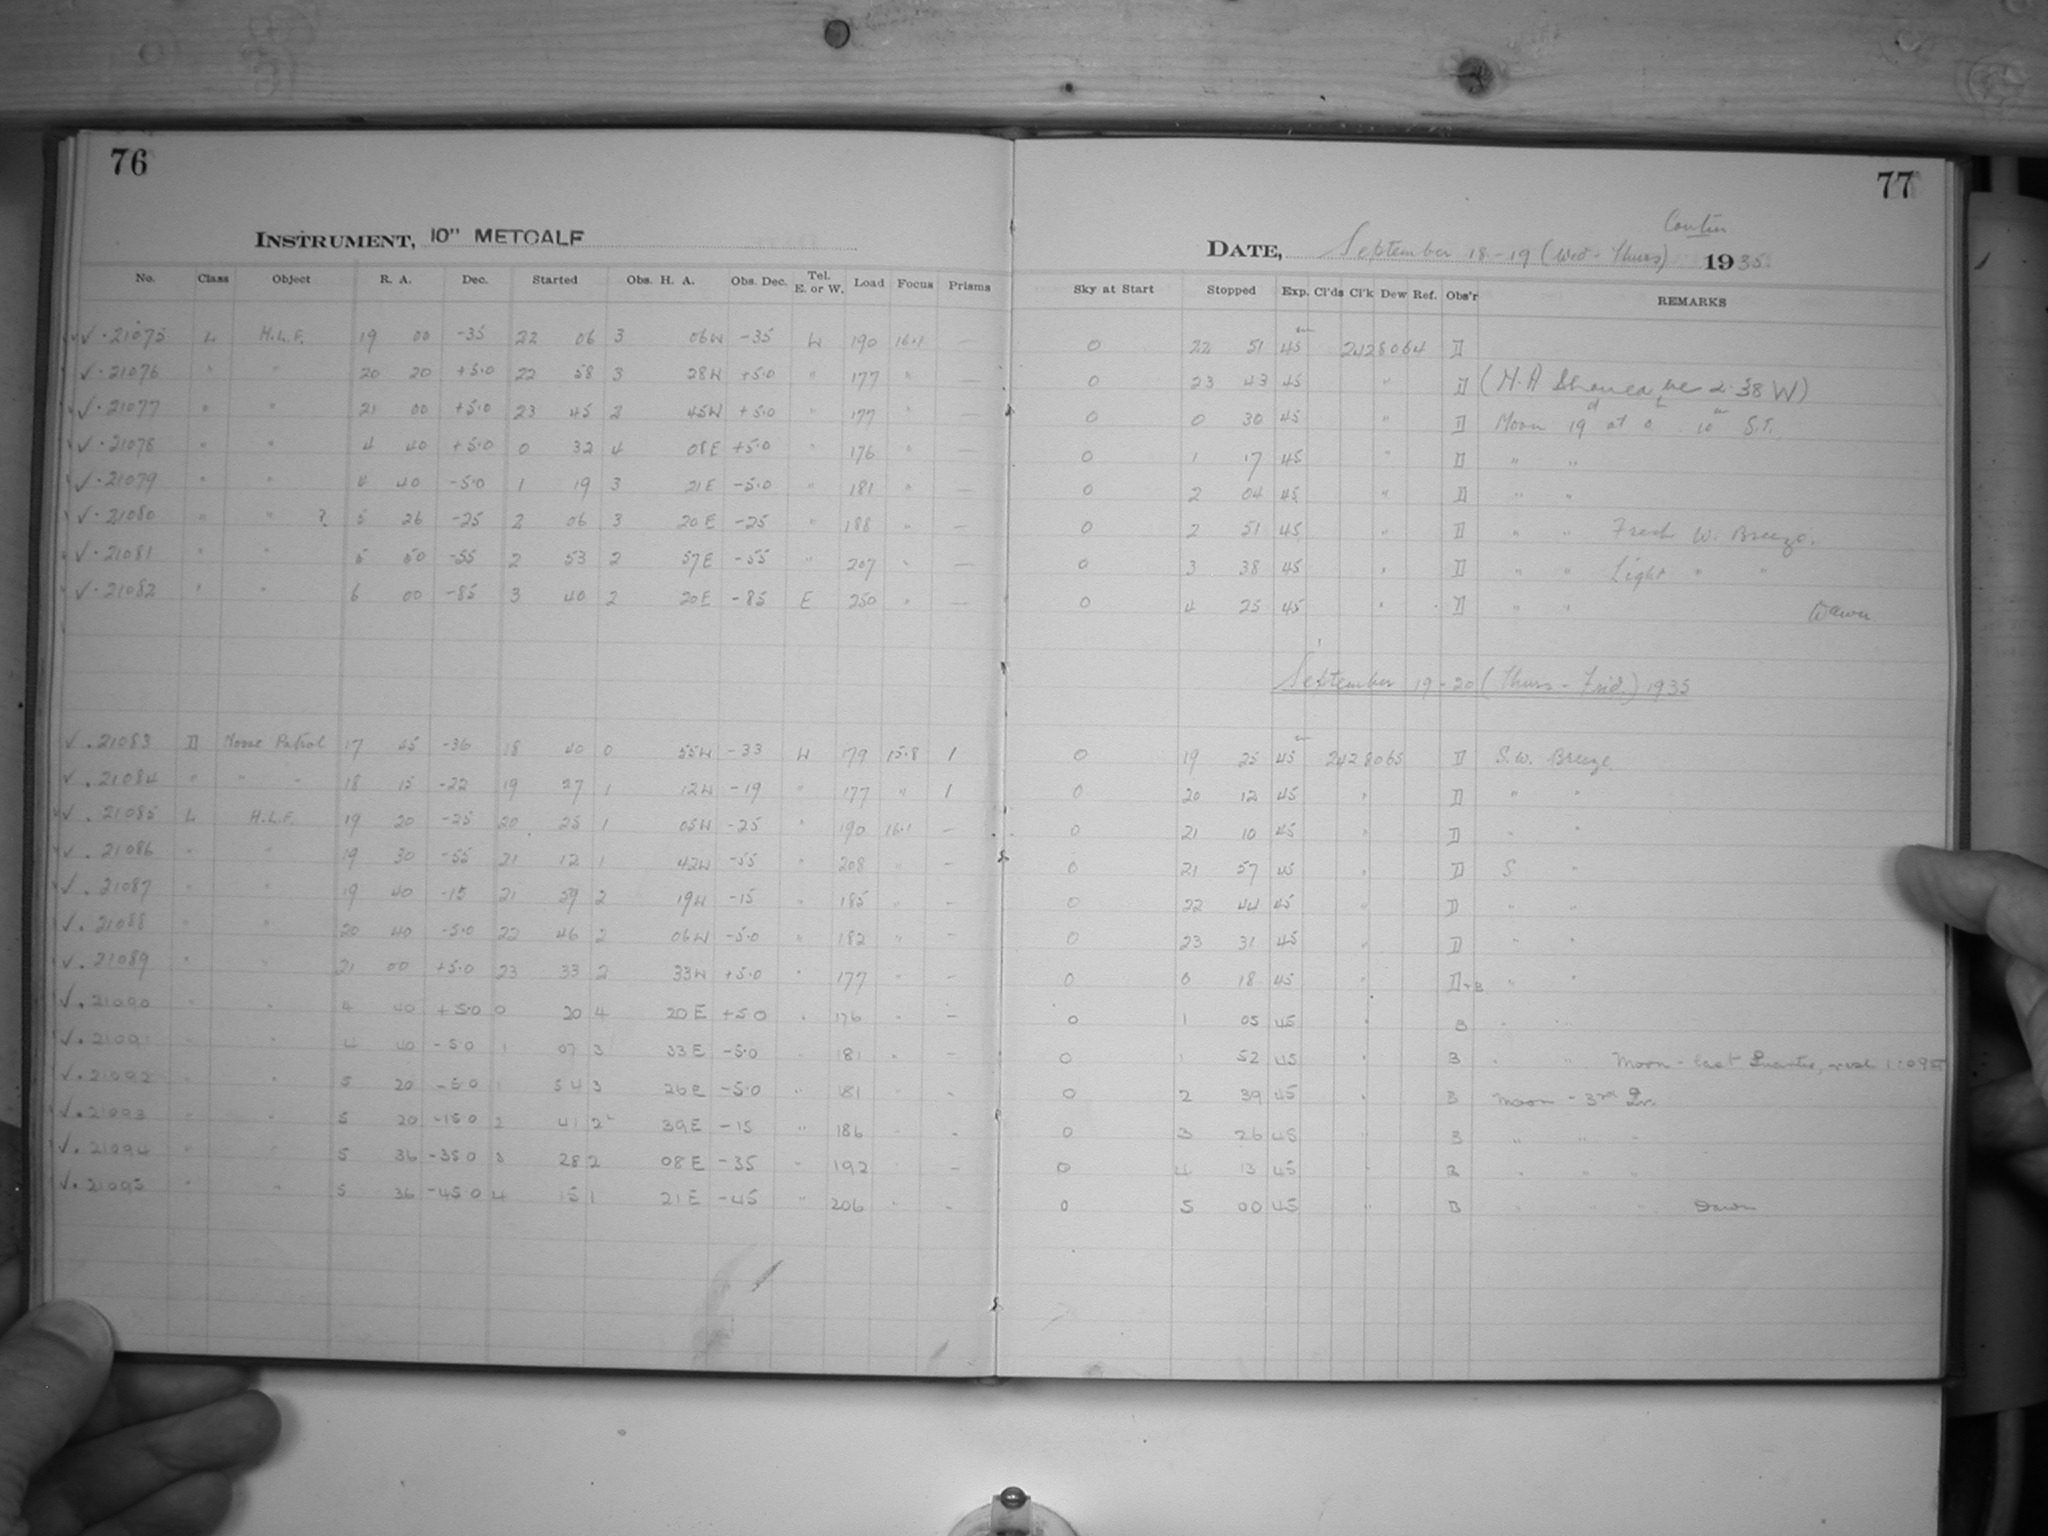 76
INSTRUMENT, 10" METCALF
No. Class Object R. A. Dec. Started Obs. H. A. Obs. Dec. Tel. E. or W. Load Focus Prisms
✓ · 21075 L H.L.F. 19 00 -35 22 06 3 06W -35 W 190 16.1 —
✓ · 21076 " " 20 20 +5.0 22 58 3 28W +5.0 " 177 " —
✓ · 21077 " " 21 00 +5.0 23 45 2 45W +5.0 " 177 " —
✓ · 21078 " " 4 40 +5.0 0 32 4 08E +5.0 " 176 " —
✓ · 21079 " " 4 40 -5.0 1 19 3 21E -5.0 " 181 " —
✓ · 21080 " " ? 5 26 -25 2 06 3 20E -25 " 188 " —
✓ · 21081 " " 5 50 -55 2 53 2 57E -55 " 207 " —
✓ · 21082 " " 6 00 -85 3 40 2 20E -85 E 250 " —
✓ . 21083 D Morse Patrol 17 45 -36 18 40 0 55W -33 W 179 15.8 1
✓ . 21084 " " " 18 15 -22 19 27 1 12W -19 " 177 " 1
✓ . 21085 L H.L.F. 19 20 -25 20 25 1 05W -25 " 190 16.1 —
✓ . 21086 " " 19 30 -55 21 12 1 42W -55 " 208 " —
✓ . 21087 " " 19 40 -15 21 59 2 19W -15 " 185 " —
✓ . 21088 " " 20 40 -5.0 22 46 2 06W -5.0 " 182 " —
✓ . 21089 " " 21 00 +5.0 23 33 2 33W +5.0 " 177 " —
✓ . 21090 " " 4 40 +5.0 0 20 4 20E +5.0 " 176 " —
✓ . 21091 " " 4 40 -5.0 1 07 3 33E -5.0 " 181 " —
✓ . 21092 " " 5 20 -5.0 1 54 3 26E -5.0 " 181 " —
✓ . 21093 " " 5 20 -15 0 2 41 2 39E -15 " 186 " —
✓ . 21094 " " 5 36 -35 0 3 28 2 08E -35 " 192 " —
✓ . 21095 " " 5 36 -45 0 4 15 1 21E -45 " 206 " —
77
Contin
DATE, September 18-19 (Wed - Thurs) 1935
Sky at Start Stopped Exp. Cl'ds Cl'k Dew Ref. Obs'r REMARKS
0 22 51 45m 2428064 D
0 23 43 45 " D (H.A. Should be 2.38 W)
0 0 30 45 " D Moon 19d at 0h 10m S.T.
0 1 17 45 " D " "
0 2 04 45 " D " "
0 2 51 45 " D " " Fresh W. Breeze.
0 3 38 45 " D " " Light " "
0 4 25 45 " D " " Dawn
September 19-20 (Thurs - Frid.) 1935
0 19 25 45m 2428065 D S.W. Breeze.
0 20 12 45 " D " "
0 21 10 45 " D " "
0 21 57 45 " D S "
0 22 44 45 " D " "
0 23 31 45 " D " "
0 0 18 45 " D+B " "
0 1 05 45 " B " "
0 1 52 45 " B " " Moon - last Quarter, rose 1:09
0 2 39 45 " B Moon - 3rd Qr.
0 3 26 45 " B " " "
0 4 13 45 " B " " "
0 5 00 45 " B " " " Dawn